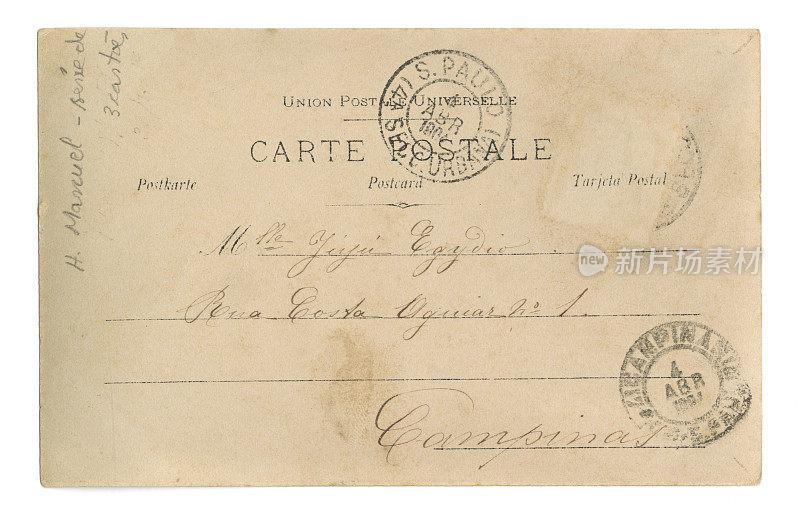 H. Manuel - série de
3 cartões
UNION POSTALE UNIVERSELLE
S. PAULO
4
ABR
(4ª SEC. URBANA)
CARTE POSTALE
Postkarte Postcard Tarjeta Postal
Mlle Egydio
Rua Costa Aguiar Nº 1.
Campinas
CAMPINAS
4
ABR
new 新片场素材